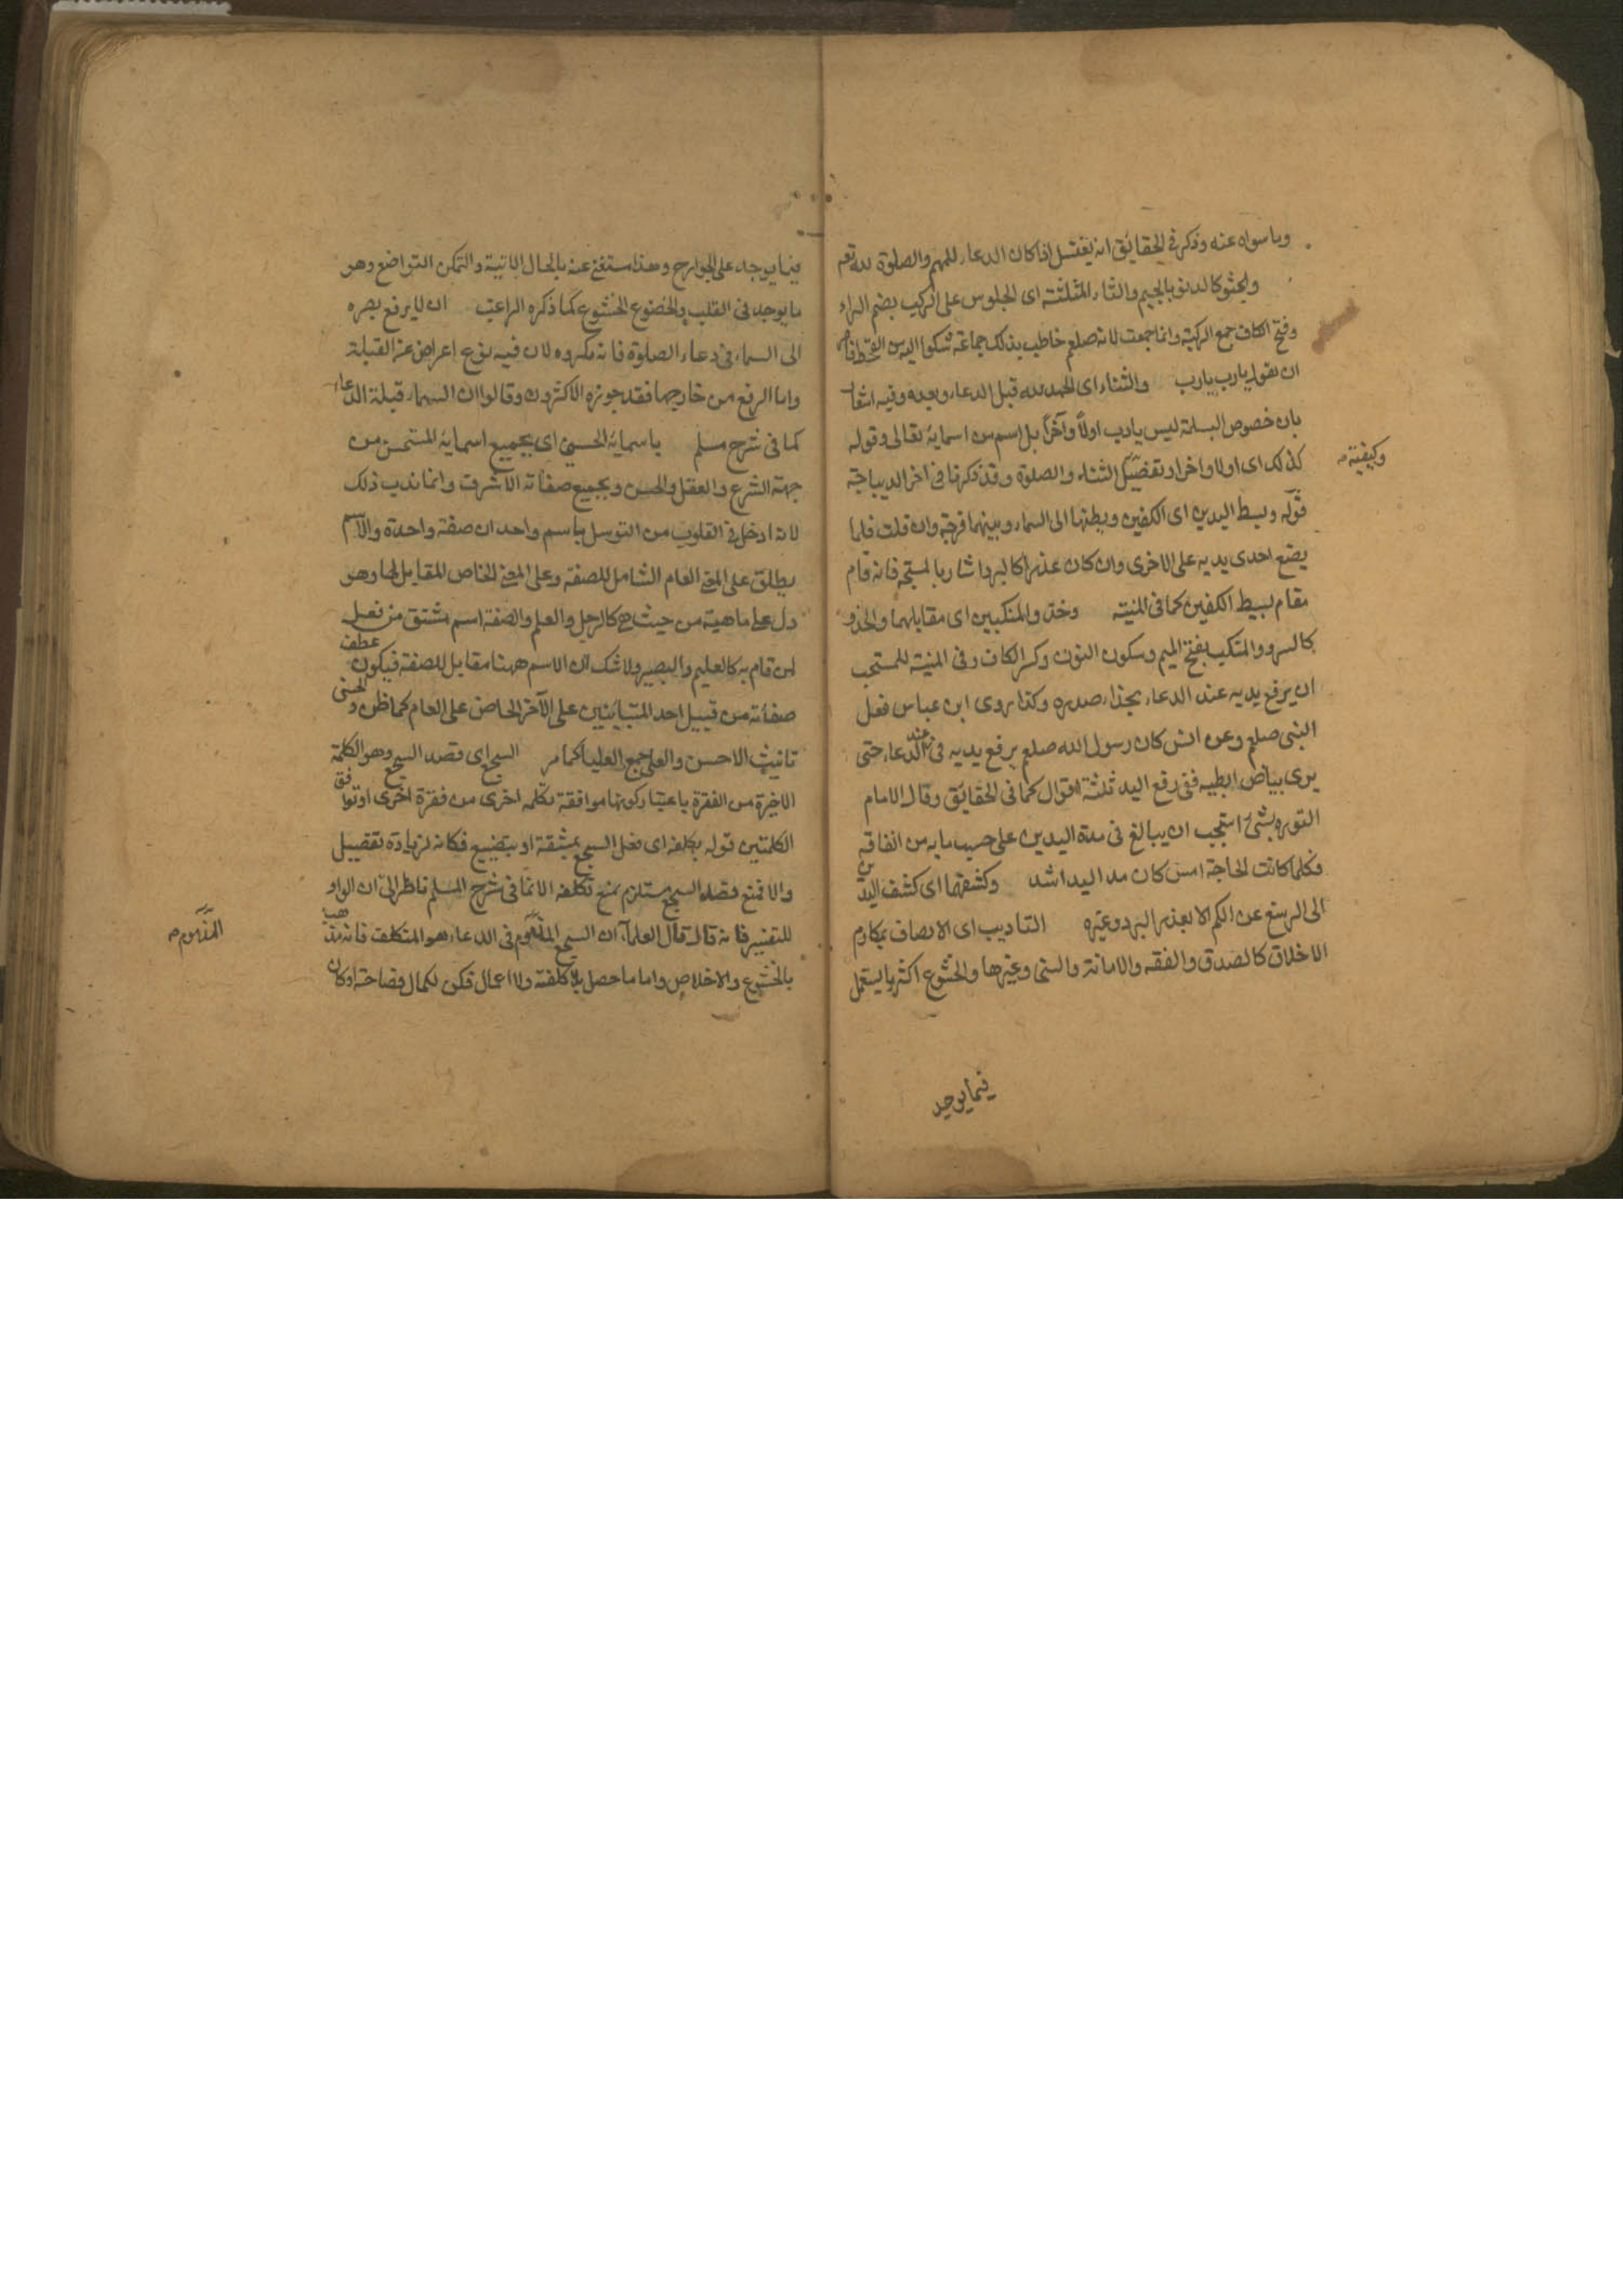 وما سواه عنه وذكر في الحقايق انه يغتسل اذا كان الدعاء للمهم والصلوة لله تعم
والجثو كالدنو بالجيم والثاء المثلثة اى الجلوس على الركب بضم الراء
وفتح الكاف جمع الركبة وانما جمعت لانه صلعم خاطب بذلك جماعة شكوا اليه من القحط
ان يقول يا رب يا رب والثناء اى الحمد لله قبل الدعاء وبعده وفيه اشعار
بان خصوص البسملة ليس بادب اولاً وآخراً بل اسم من اسمايه تعالى وقوله
كذلك اى اولا واخرا وتفضيل الثناء والصلوة وقد ذكرنا في اخر الديباجة
وكيفية
قوله وبسط اليدين اى الكفين وبطنها الى السماء وبينهما فرجة وان قلت فلما
يضع احدى يديه على الاخرى وان كان عذر كالبرد اشار بالمسبحة فانه قام
مقام بسيط الكفين كما فى المنية وحذو المنكبين اى مقابلهما والحذو
كالسرو والمنكب بفتح الميم وسكون النون وكسر الكاف وفى المنية المستحب
ان يرفع يديه عند الدعاء بحذاء صدره وكذا روى ابن عباس فعل
النبى صلعم وعن انس كان رسول الله صلعم يرفع يديه فى عند الدعاء حتى
يرى بياض ابطيه ففى رفع اليد ثلثة اقوال كما فى الحقائق وقال الامام
التوربشتى استحب ان يبالغ فى مدة اليدين على حسب ما به من الفاقة
فكلما كانت الحاجة امس كان مد اليد اشد وكشفهما اى كشف اليدين
الى الرسغ عن الكم الا بعذر البرد وغيره التاديب اى الاتصاف بمكارم
الاخلاق كالصدق والفقه والامانة والسخى وغيرها والخشوع اكثر ما يستعمل
فيما يوجد
فيما يوجد على الجوارح وهذا مستغنى عنه بالحال الاتية والتمكن التواضع وهو
ما يوجد فى القلب والخضوع الخشوع كما ذكره الراغب ان لا يرفع بصره
الى السماء فى دعاء الصلوة فانه مكروه لان فيه نوع اعراض عن القبلة
واما الرفع من خارجها فقد جوزه الاكثرون وقالوا ان السماء قبلة الدعاء
كما فى شرح مسلم باسمائه الحسنى اى بجميع اسمايه المستحسن من
جهة الشرع والعقل والحسن وبجميع صفاته الاشرف وانما ندب ذلك
لانه ادخل فى القلوب من التوسل باسم واحد ان صفة واحدة والاسم
يطلق على المعنى العام الشامل للصفة وعلى المعنى الخاص المقابل لها وهو
دل على ماهية من حيث هى كالرجل والعلم والصفة اسم مشتق من فعل
لمن قام به كالعليم والبصير ولا شك ان الاسم ههنا مقابل للصفة فيكون عطف
صفاته من قبيل احد المتبائنين على الآخر لا الخاص على العام كما ظن والحسنى
تانيث الاحسن والعلى جمع العليا كما مر السجع اى قصد السجع وهو الكلمة
الاخيرة من الفقرة باعتبار كونها موافقة بكلمه اخرى من فقرة اخرى او توافق
الكلمتين قوله بكلفه اى فعل السجع بمشقة او بتضييع فكانه لزيادة تفضيل
والا فمنع قصد السجع مستلزم بمنع تكلفه الا نما فى شرح المسلم ناظر الى ان الواو
للتفسير فانه قال قال العلماء ان السجع المذموم فى الدعاء هو المتكلف فانه يذهب
المذموم
بالخشوع والاخلاص واما ما حصل بلا كلفة ولا اعمال فكر لكمال فصاحة او كان